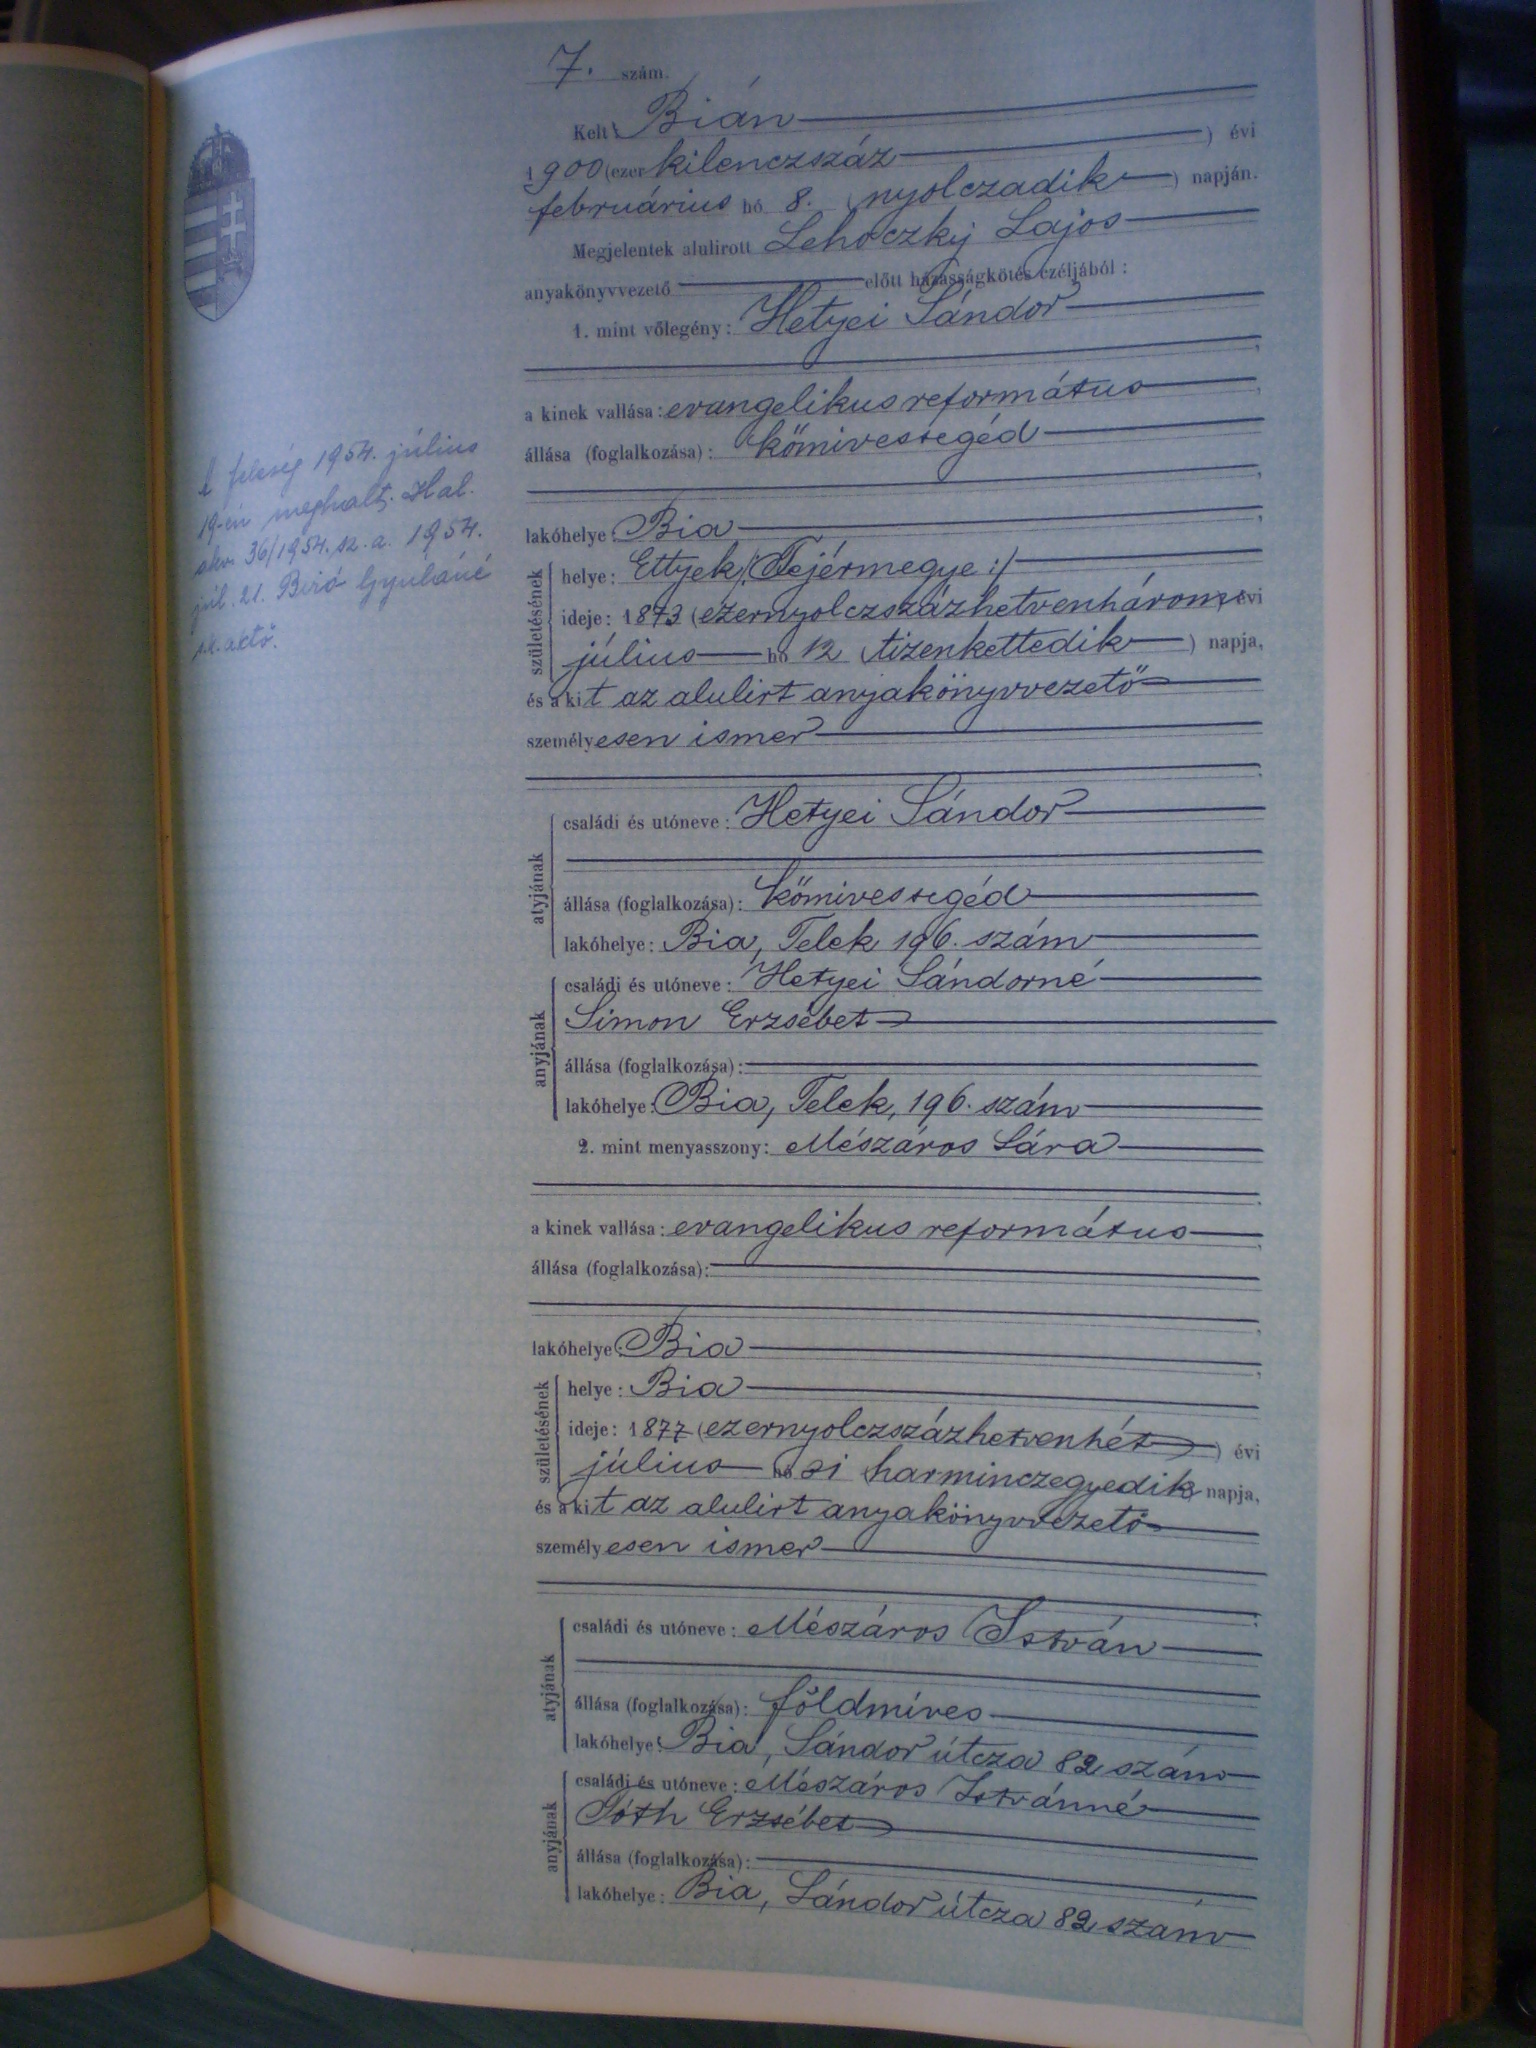 7. szám.
Kelt Bián
1900 (ezer kilenczszáz ) évi
februárius hó 8. (nyolczadik ) napján.
Megjelentek alulirott Lehoczky Lajos
anyakönyvvezető előtt házasságkötés czéljából :
1. mint vőlegény : Hetyei Sándor
a kinek vallása : evangelikus református
állása (foglalkozása) : kőmivessegéd
lakóhelye : Bia
születésének
helye : Ettyek /: Fejérmegye :/
ideje : 1873 (ezernyolczszázhetvenhárom) évi
július hó 12 (tizenkettedik ) napja,
és a kit az alulirt anyakönyvvezető
személyesen ismer
atyjának
családi és utóneve : Hetyei Sándor
állása (foglalkozása) : kőmivessegéd
lakóhelye : Bia, Telek 196. szám
anyjának
családi és utóneve : Hetyei Sándorné
Simon Erzsébet
állása (foglalkozása) :
lakóhelye : Bia, Telek, 196. szám
2. mint menyasszony : Mészáros Sára
a kinek vallása : evangelikus református
állása (foglalkozása) :
lakóhelye : Bia
születésének
helye : Bia
ideje : 1877 (ezernyolczszázhetvenhét ) évi
július hó 31 (harminczegyedik) napja,
és a kit az alulirt anyakönyvvezető
személyesen ismer
atyjának
családi és utóneve : Mészáros István
állása (foglalkozása) : földmíves
lakóhelye : Bia, Sándor útcza 82 szám
anyjának
családi és utóneve : Mészáros Istvánné
Tóth Erzsébet
állása (foglalkozása) :
lakóhelye : Bia, Sándor útcza 82 szám
A feleség 1954. július
19-én meghalt. Hal.
akv. 36/1954. sz. a. 1954.
júl. 21. Biró Gyuláné